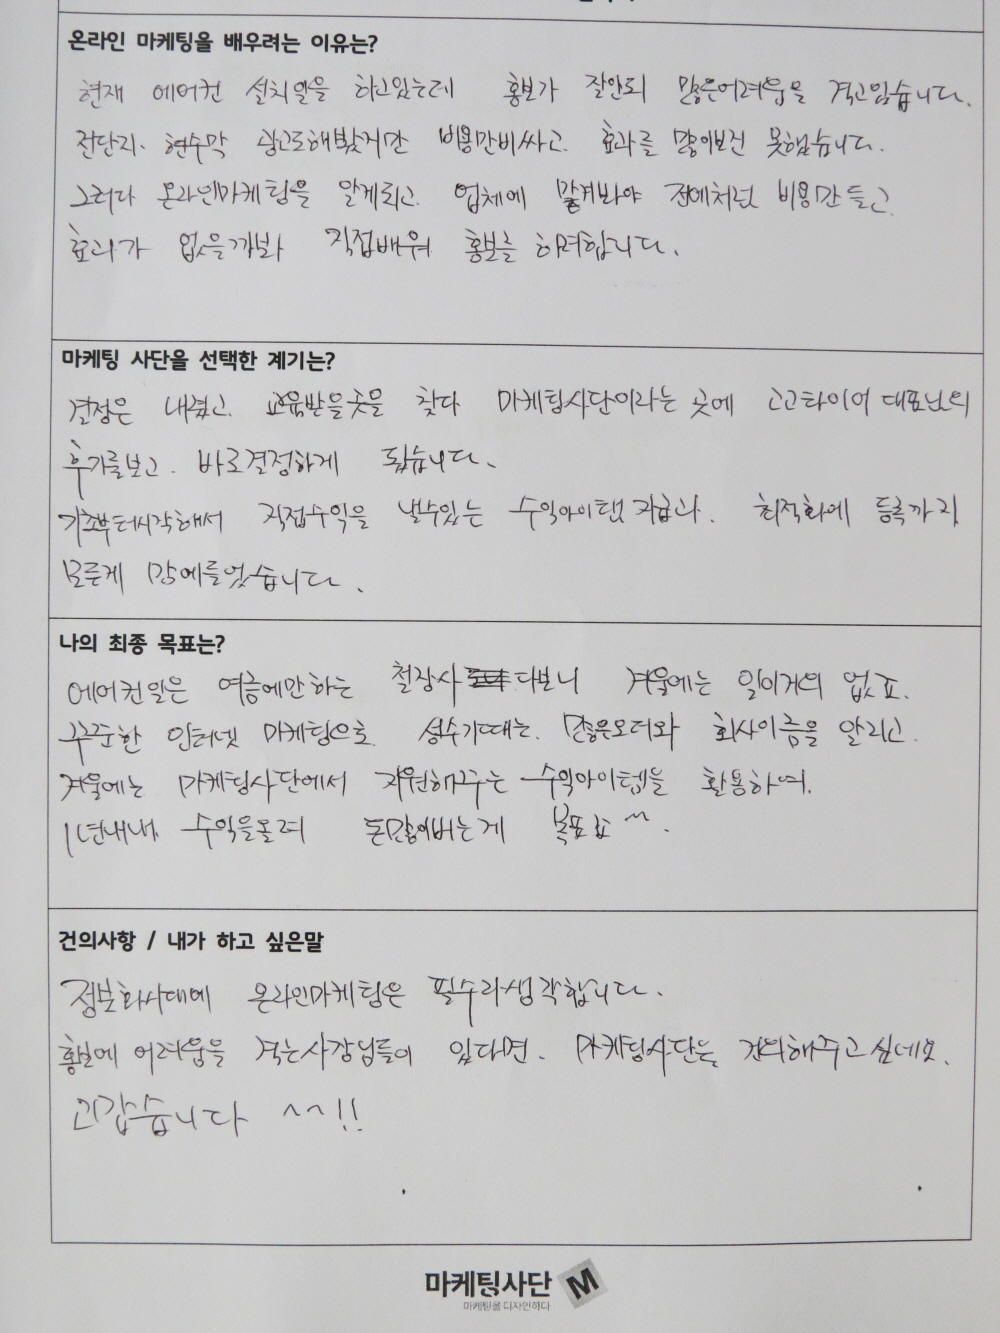 온라인 마케팅을 배우려는 이유는?
현재 에어컨 설치일을 하고있는데 홍보가 잘안되 많은어려움을 겪고있습니다.
전단지. 현수막 광고도해봤지만 비용만비싸고. 효과를 많이보진 못했습니다.
그러다 온라인마케팅을 알게되고. 업체에 맡겨봐야 전에처럼 비용만 들고.
효과가 없을까봐 직접배워 홍보를 하려합니다.
마케팅 사단을 선택한 계기는?
결정은 내렸고. 교육받을곳을 찾다 마케팅사단이라는 곳에 고고타이어 대표님의
후기를보고. 바로결정하게 됬습니다.
기초부터시작해서 직접수익을 낼수있는 수익아이템 지급과. 최적화에 등록까지
모든게 맘에들었습니다.
나의 최종 목표는?
에어컨일은 여름에만하는 철장사 다보니 겨울에는 일이거의 없죠.
꾸준한 인터넷 마케팅으로. 성수기때는. 많은오더와 회사이름을 알리고.
겨울에는 마케팅사단에서 지원해주는 수익아이템을 활용하여.
1년내내 수익을올려 돈많이버는게 목표죠 ^^.
건의사항 / 내가 하고 싶은말
정보화시대에 온라인마케팅은 필수라생각합니다.
홍보에 어려움을 겪는사장님들이 있다면. 마케팅사단을 건의해주고싶네요.
고맙습니다 ^^!!
마케팅사단 M
마케팅을 디자인하다